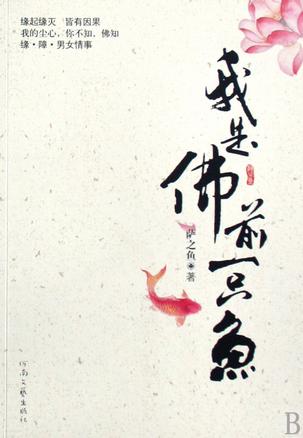 缘起缘灭 皆有因果
我的尘心，你不知，佛知
缘·障·男女情事
我是
佛前一只鱼
萨之鱼 著
河南文艺出版社
B